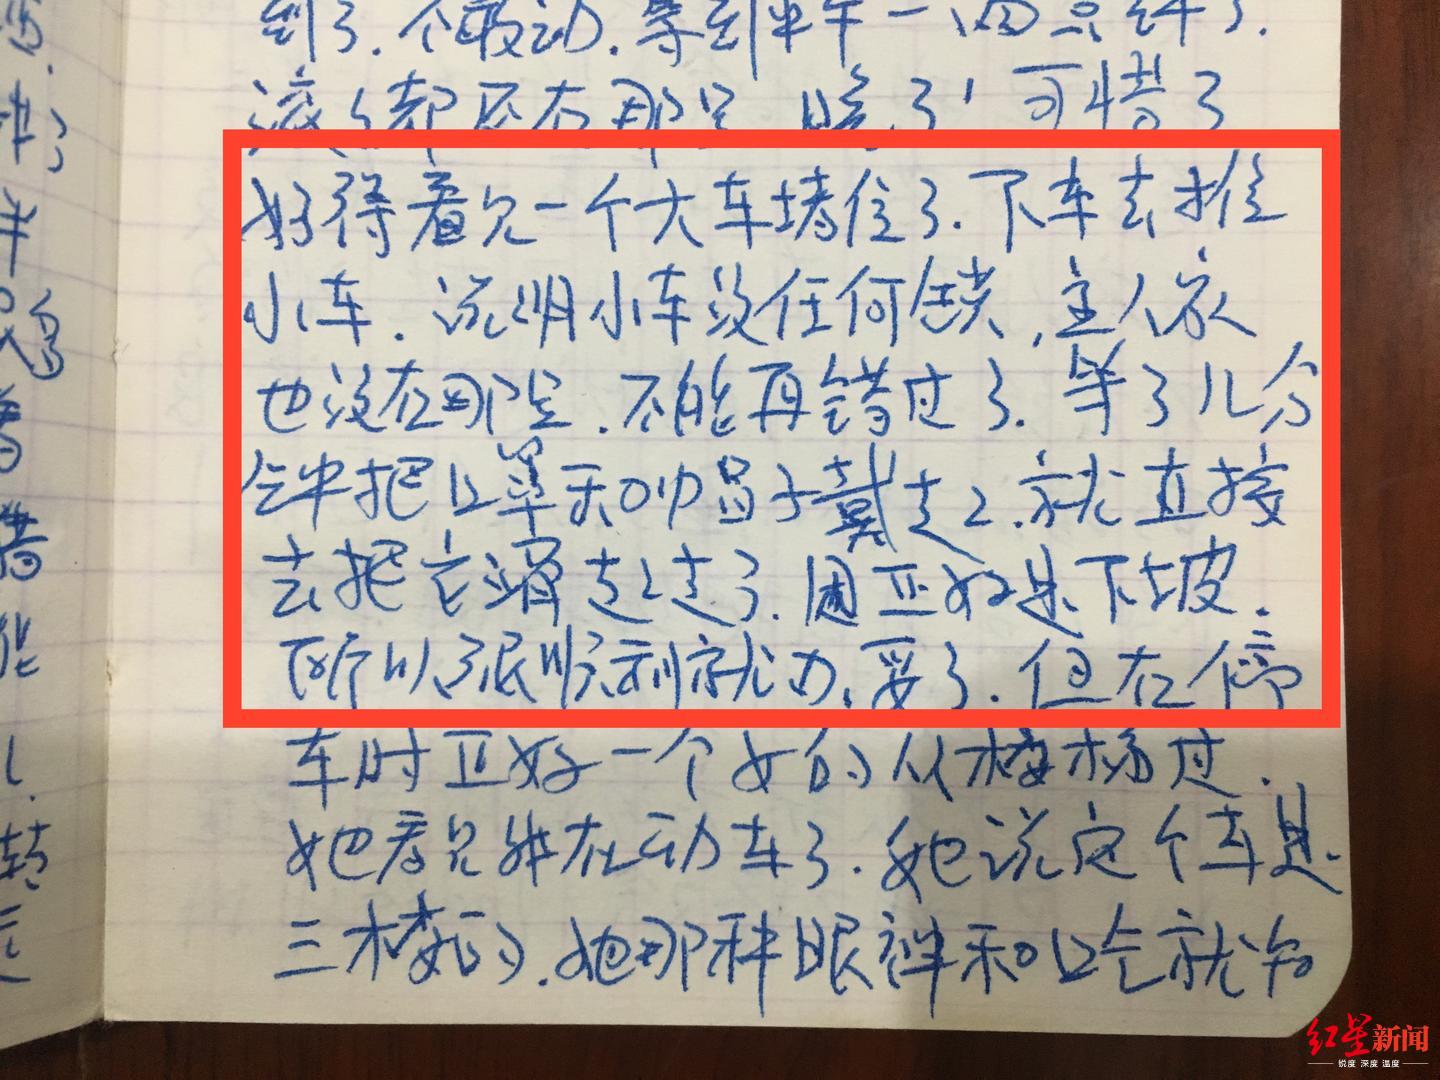 到了.个敢动.等到中午一点钟了.
滚都还在那里晚了!可惜了
好得看见一个大车堵住了.下车去推
小车.说明小车没任何锁,主人家
也没在那里.不能再错过了.等了几分
钟把口罩和帽子戴起.就直接
去把它滑起走了.周正好是下坡.
所以很顺利就办妥了.但在停
车时正好一个女的从楼梯过.
她看见我在动车了.她说这个车是
三楼的.她那种眼神和口气就知
红星新闻
锐度 深度 温度